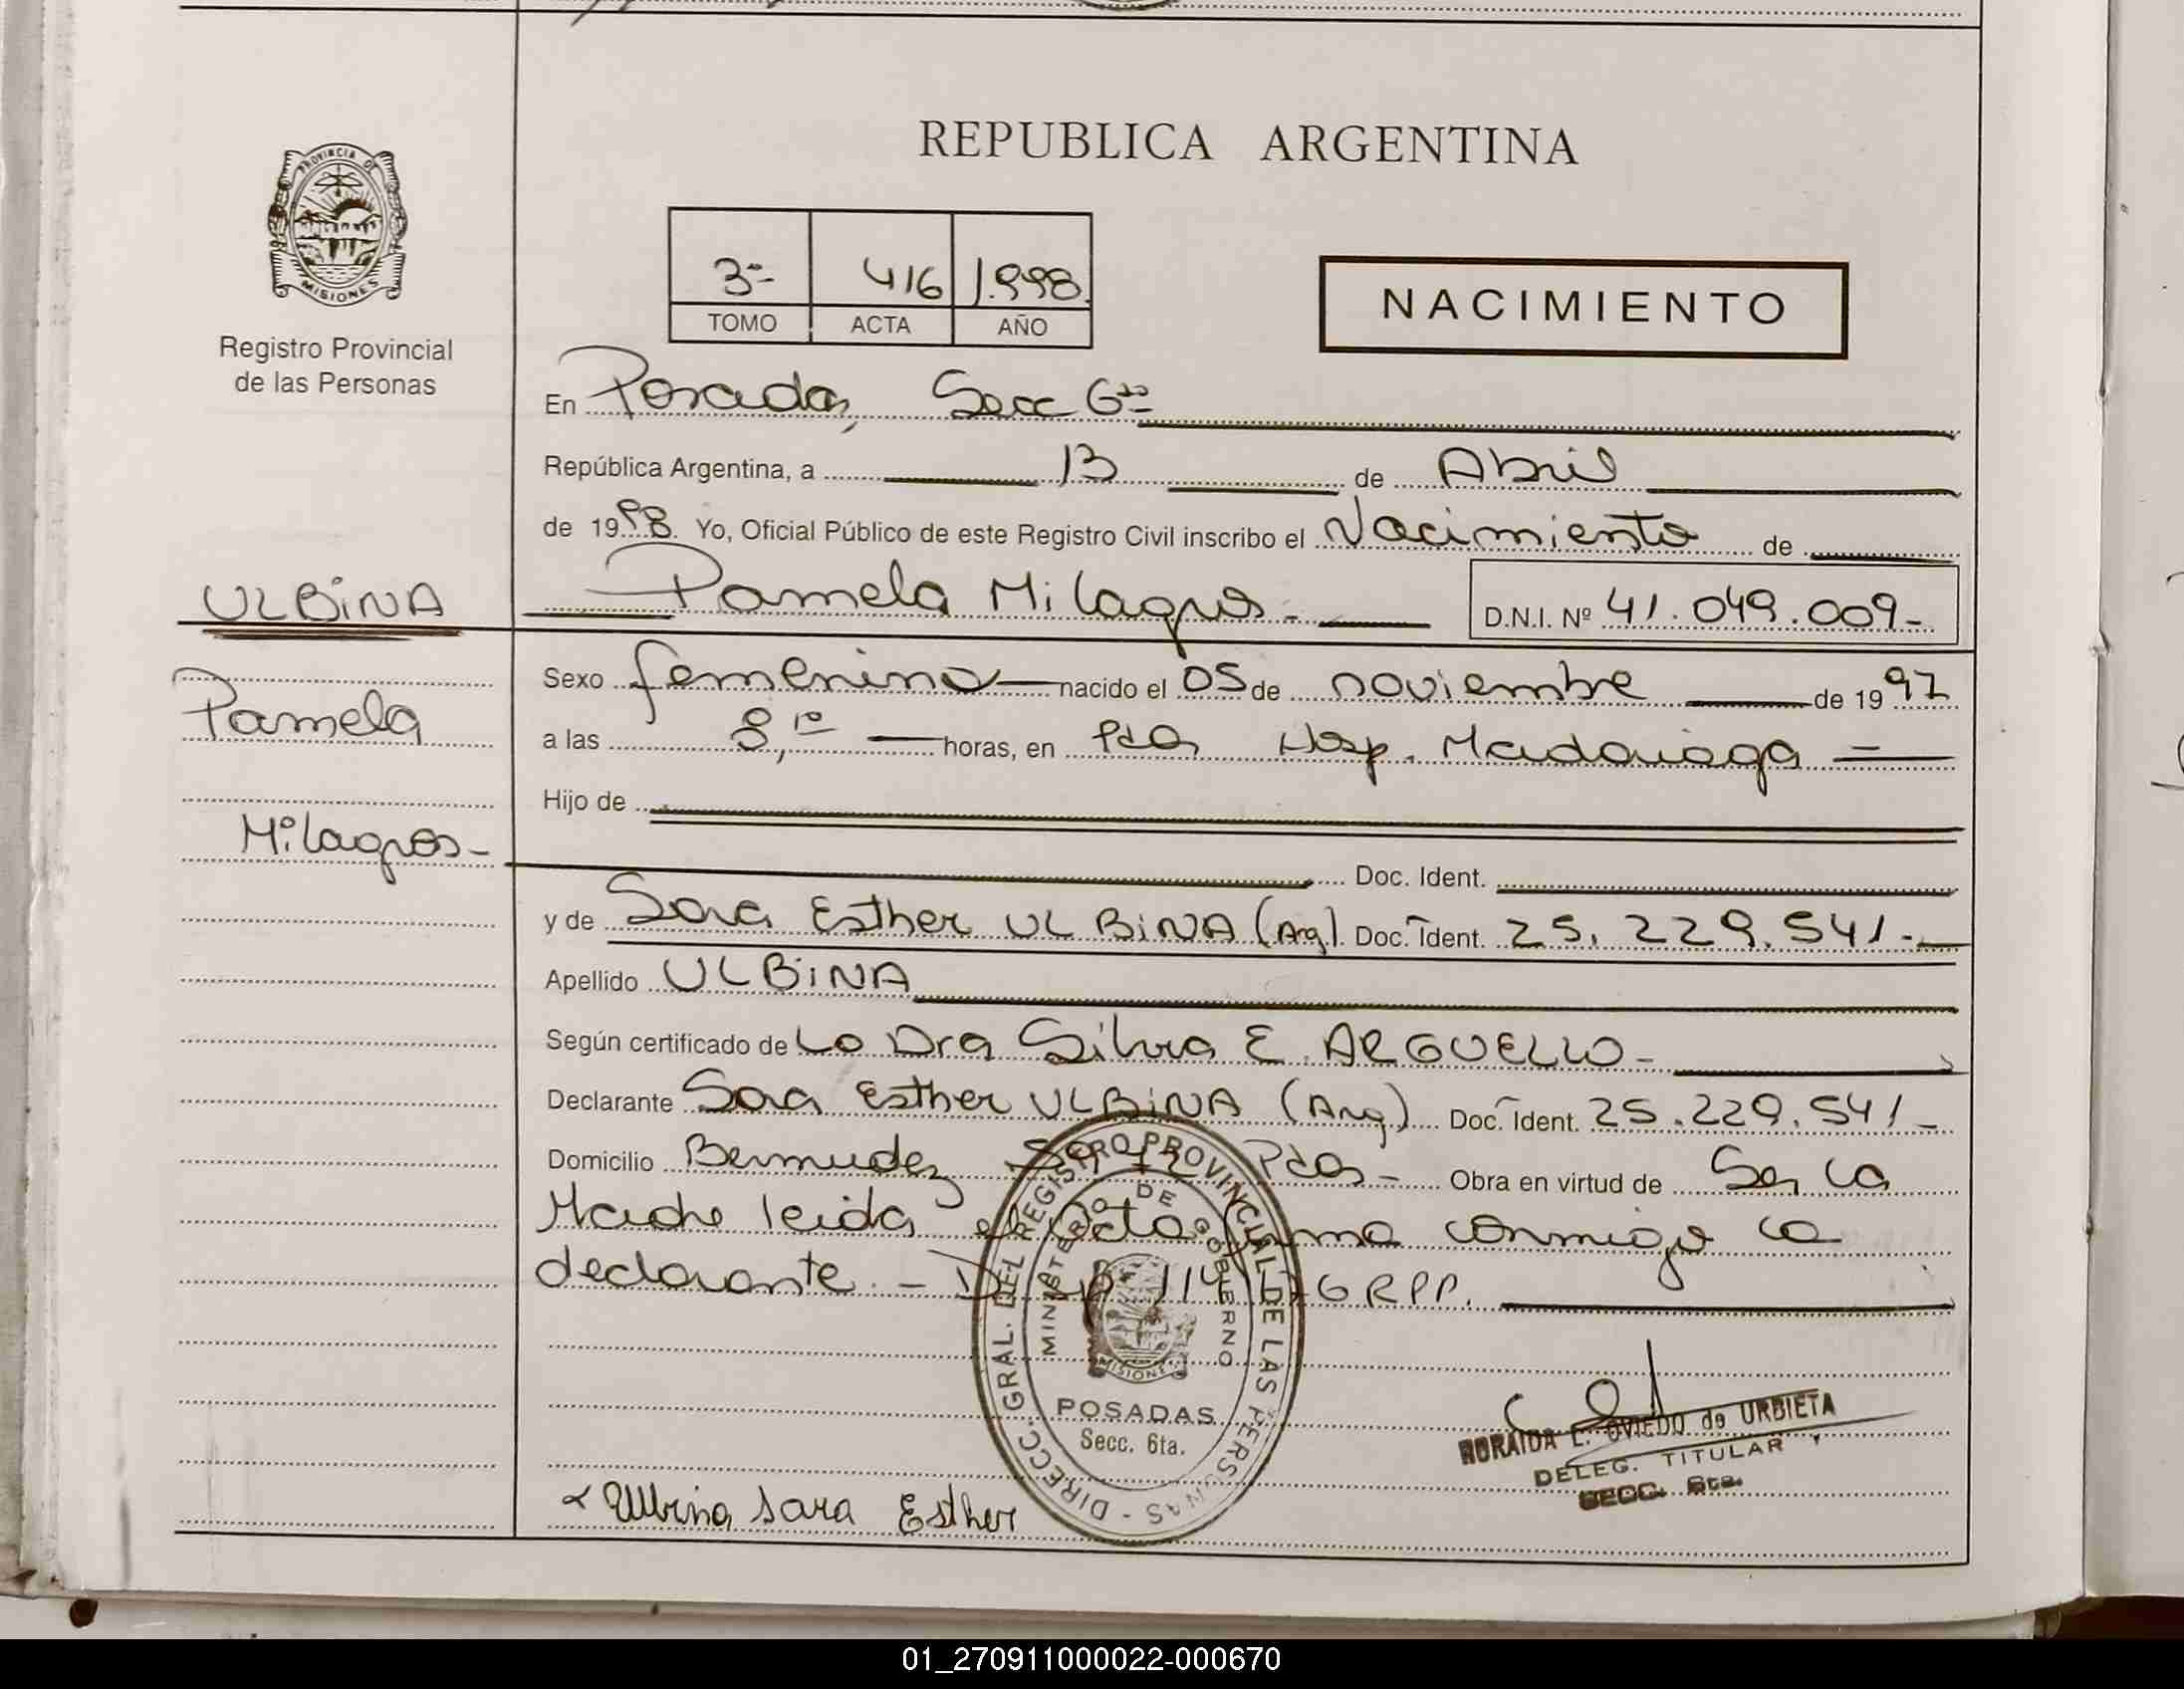 REPUBLICA ARGENTINA
PROVINCIA DE
MISIONES
Registro Provincial
de las Personas
3º- 416 1.998.
TOMO ACTA AÑO
NACIMIENTO
En Posadas, Secc 6ta
República Argentina, a 13 de Abril
de 1998. Yo, Oficial Público de este Registro Civil inscribo el Nacimiento de
ULBINA
Pamela Milagros.- D.N.I. Nº 41.049.009-
Pamela
Milagros-
Sexo femenino nacido el 05 de noviembre de 1997
a las 8,10 horas, en Pdas Hosp. Madariaga =
Hijo de
Doc. Ident.
y de Sara Esther ULBINA (Arg). Doc. Ident. 25.229.541.-
Apellido ULBINA
Según certificado de La Dra Silvia E. ARGUELLO-
Declarante Sara Esther ULBINA (Arg) Doc. Ident. 25.229.541-
Domicilio Bermudez Pdas- Obra en virtud de Ser la
Madre leida el Acta firma conmigo la
declarante.- 114 GRPP.
DIRECC. GRAL. DEL REGISTRO PROVINCIAL DE LAS PERSONAS -
MINISTERIO DE GOBIERNO
MISIONES
POSADAS
Secc. 6ta.
E. OVIEDO de URBIETA
DELEG. TITULAR
SECC. 6ta.
Ulbina Sara Esther
01_270911000022-000670